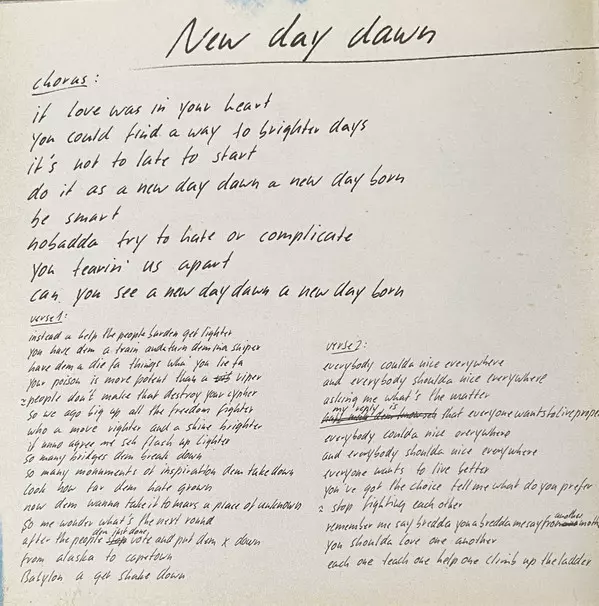 New day dawn
chorus:
if love was in your heart
you could find a way to brighter days
it's not to late to start
do it as a new day dawn a new day born
be smart
nobadda try to hate or complicate
you tearin' us apart
can you see a new day dawn a new day born
verse 1:
instead a help the people burden get lighter
you have dem a train and turn dem ina sniper
have dem a die fa things whn' you lie fa
your poison is more potent than a viper
people don't make that destroy your cypher
so we ago big up all the freedom fighter
who a move righter and a shine brighter
if unno agree me seh flash up lighter
so many bridges dem break down
so many monuments of inspiration dem take down
look how far dem hate grown
now dem wanna take it to mars a place of unknown
so me wonder what's the next round
after the people dem just done vote and put dem x down
from alaska to capetown
Babylon a get shake down
verse 2:
everybody coulda nice everywhere
and everybody shoulda nice everywhere
asking me what's the matter
my reply is that everyone wants to live proper
everybody coulda nice everywhere
and everybody shoulda nice everywhere
everyone wants to live better
you've got the choice tell me what do you prefer
stop fighting each other
remember me say bredda you a bredda me say from another
you shoulda love one another
each one teach one help one climb up the ladder